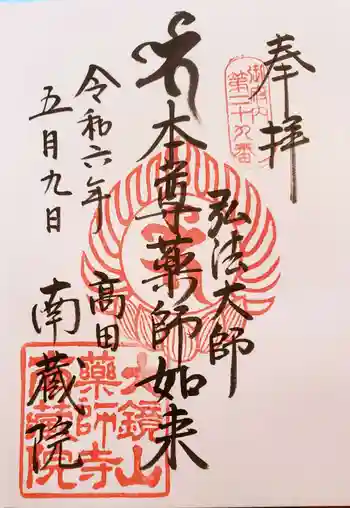 奉拝
御府内
第二十九番
弘法大師
本尊薬師如来
高田
南蔵院
令和六年
五月九日
大鏡山
薬師寺
南蔵院